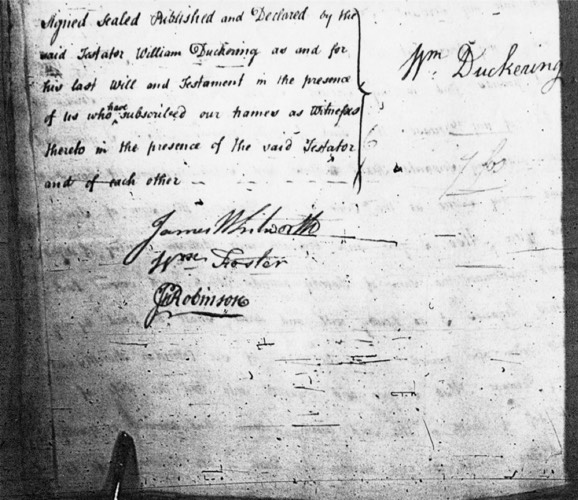 Signed Sealed Published and Declared by the
said Testator William Duckering as and for
his last Will and Testament in the presence
of us who have subscribed our names as Witnesses
thereto in the presence of the said Testator
and of each other
Wm Duckering
James Whitworth
Wm Foster
Robinson